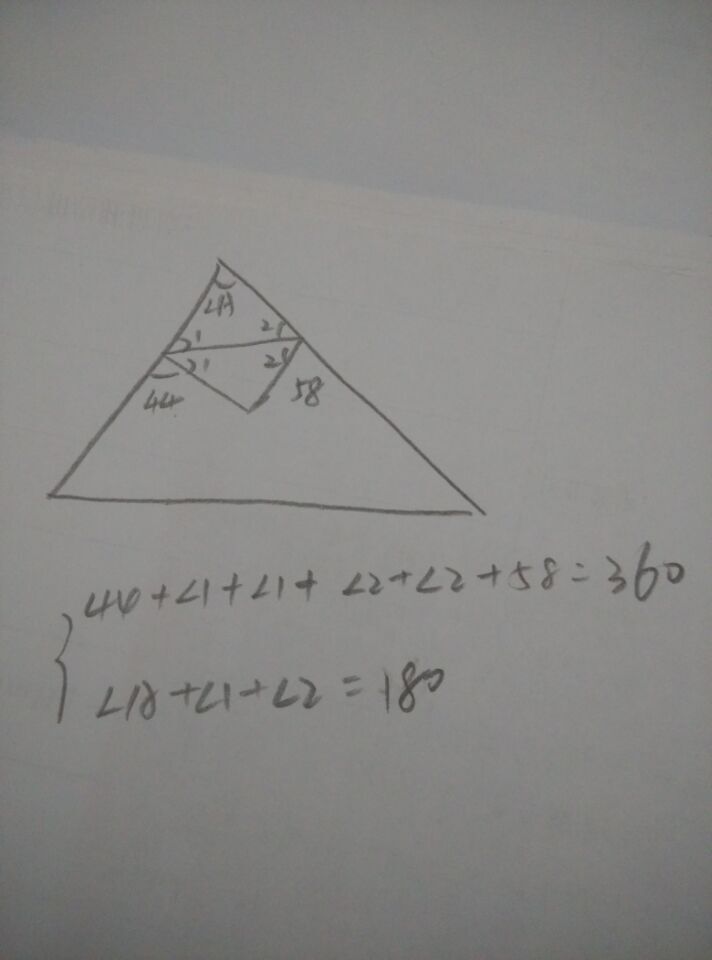 ∠A
∠1 ∠2
∠1 ∠2
44 58
44+∠1+∠1+∠2+∠2+58=360
∠A+∠1+∠2=180